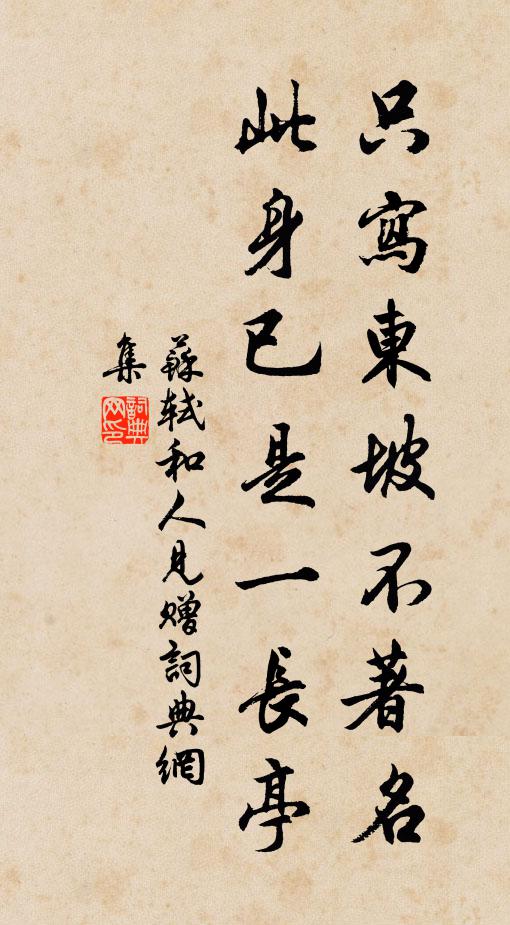 只寫東坡不著名
此身已是一長亭
蘇軾和人見贈詞典網
集
詞典網印